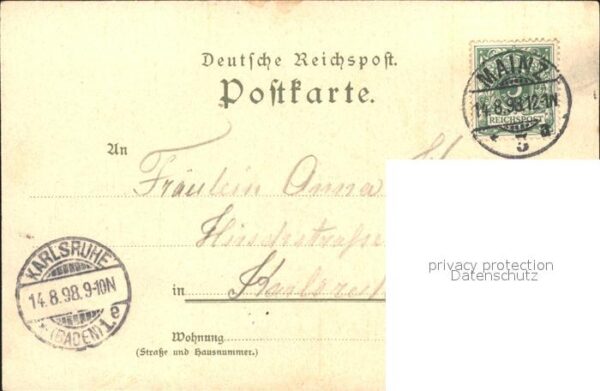 Deutsche Reichspost.
Postkarte.
MAINZ
14.8.98.12-1N
* 3 a
5
REICHSPOST
An
Fräulein Anna
in Karlsruhe
KARLSRUHE
14.8.98.9-10N
* (BADEN) 1.e
Wohnung
(Straße und Hausnummer.)
privacy protection
Datenschutz